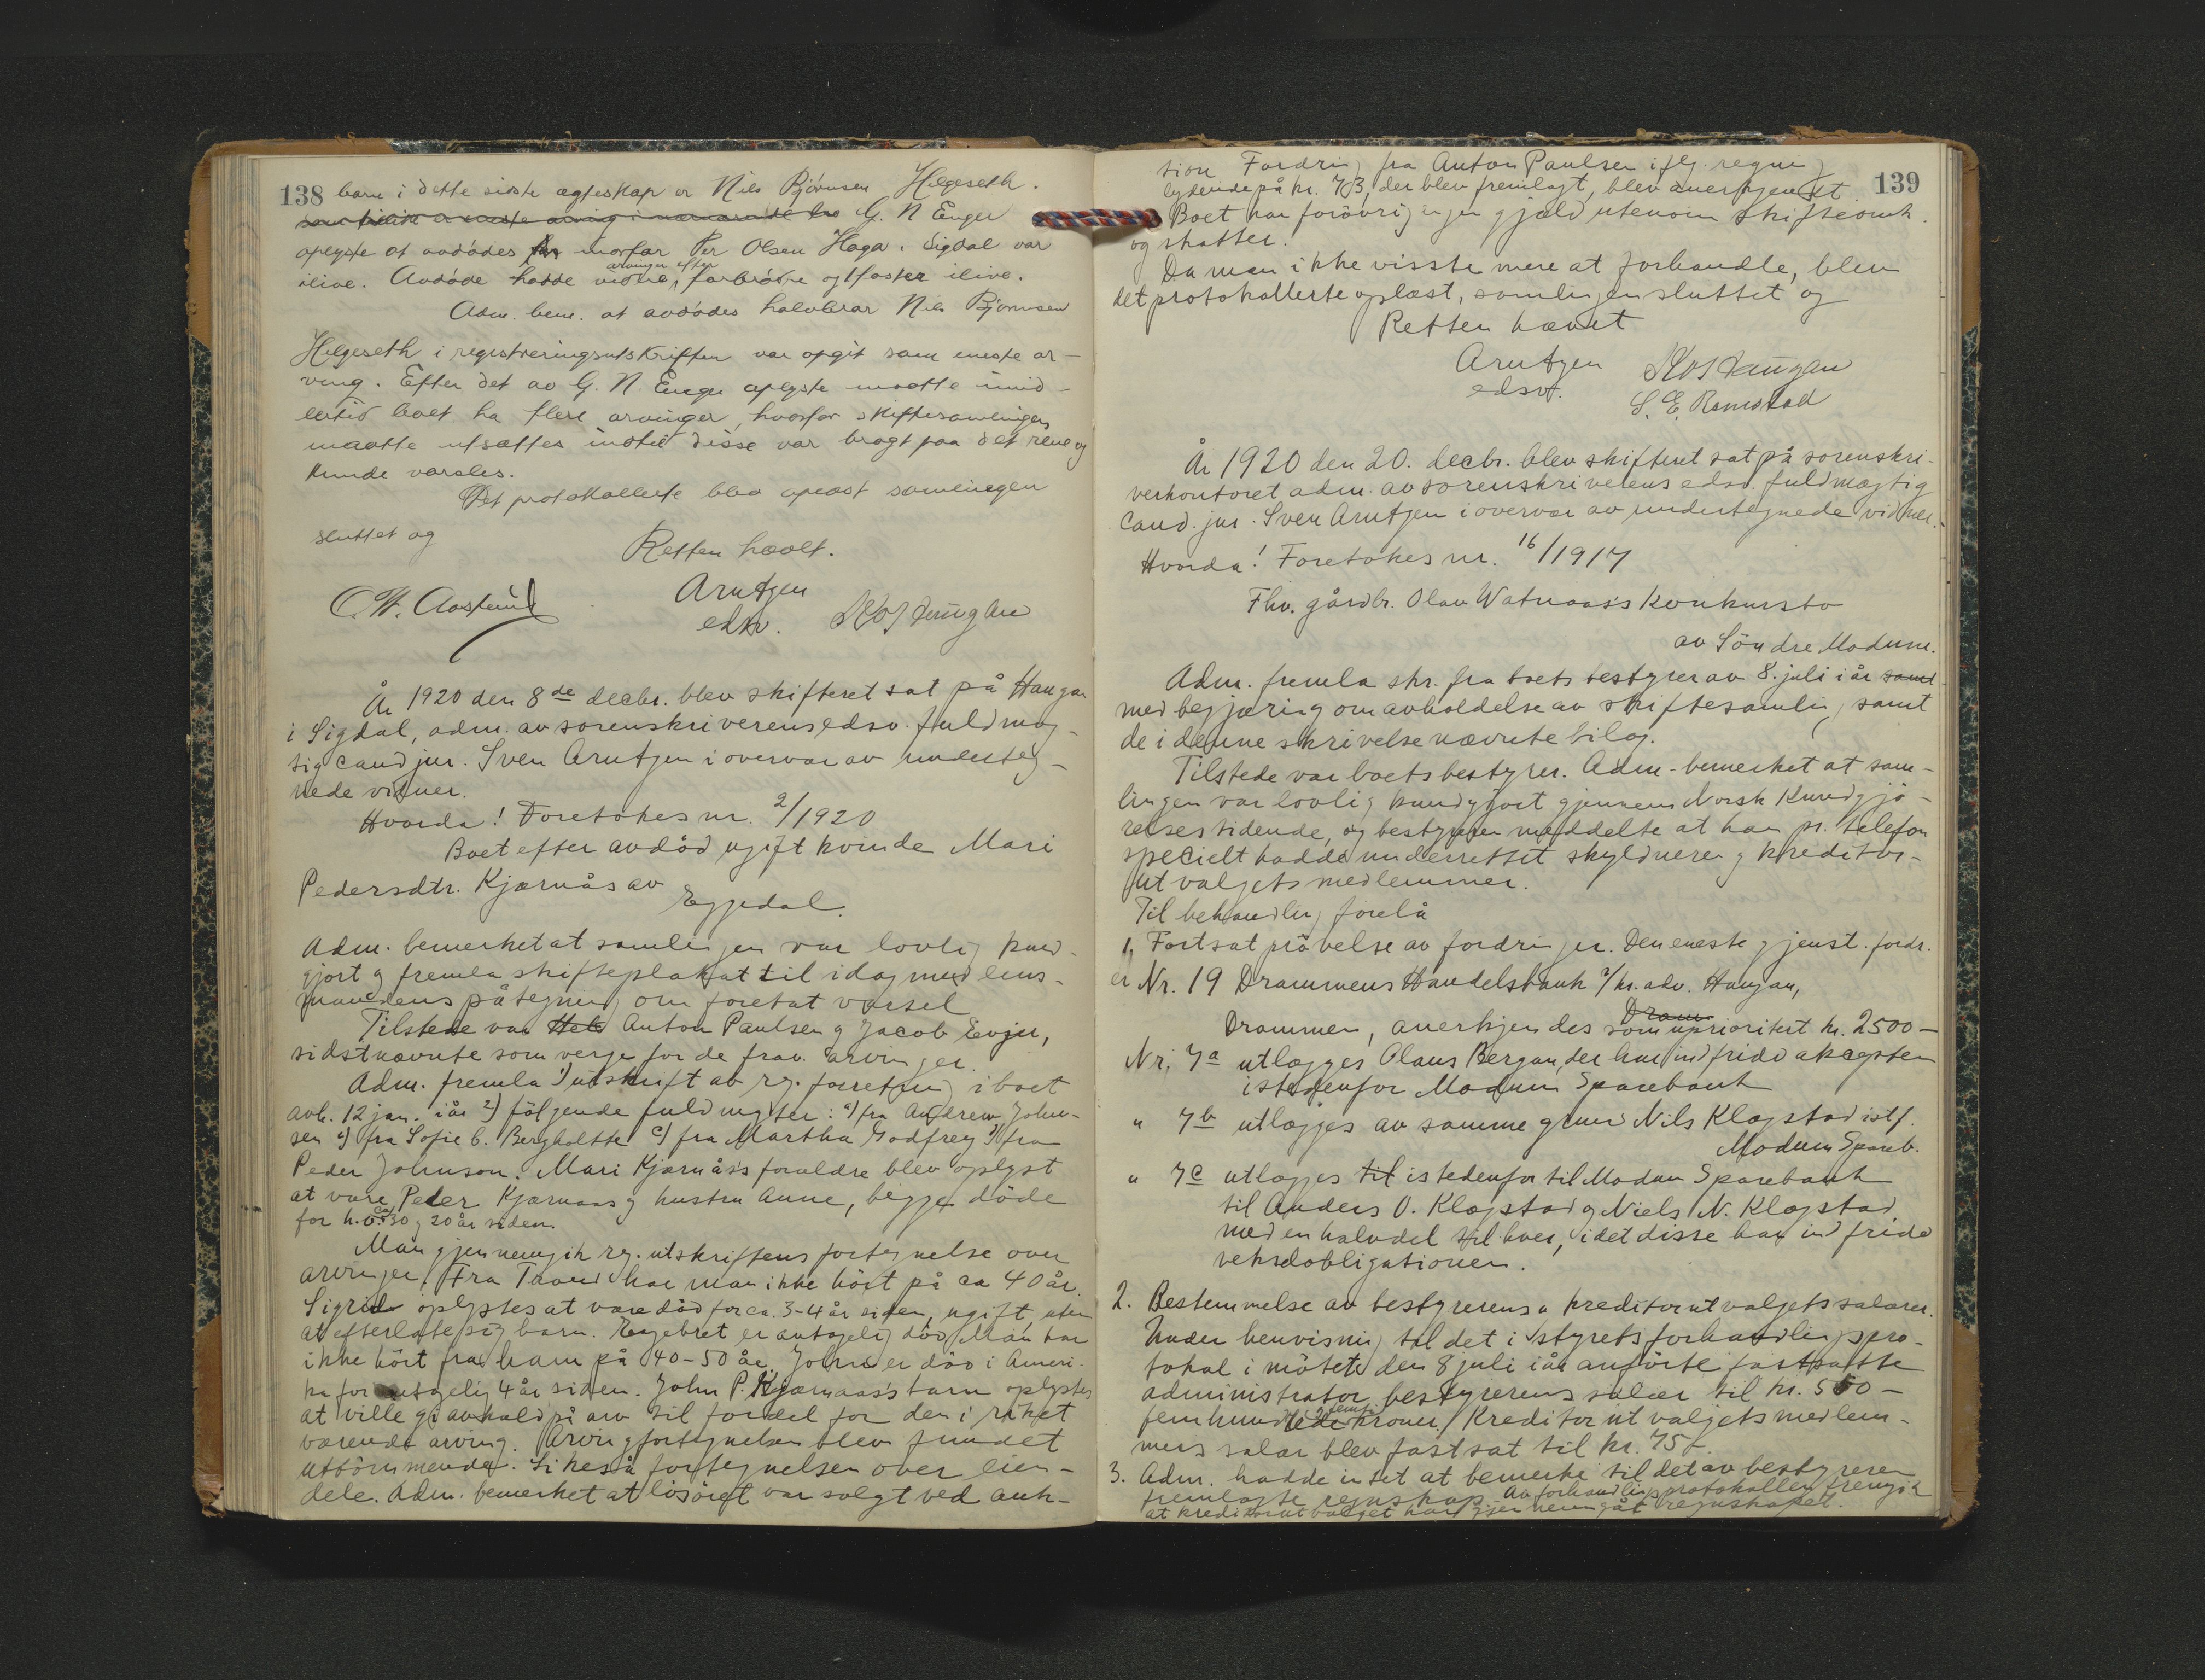 138 barn i dette siste ægteskap er Nils Björnsen Helgeseth.
G. N Enger
oplyste at avdödes morfar Per Olsen Haga i Sigdal var
ilive. Avdöde hadde videre arvinger efter farbrödre og 1 faster ilive.
Adm. bem. at avdödes halvbror Nils Björnsen
Helgeseth i registreringsutskriften var opgit som eneste ar-
ving. Efter det av G. N. Enger oplyste maatte imid-
lertid boet ha flere arvinger, hvorfor skiftesamlingen
maatte utsættes indtil disse var bragt paa det rene og
kunde varsles.
Det protokollerte blev oplæst samlingen
sluttet og
Retten hævet.
Arntzen
edsv.
År 1920 den 8de decbr. blev skifteret sat på Haugan
i Sigdal, adm. av sorenskriverens edsv. fuldmæg-
tig cand jur. Sven Arntzen i overvær av underteg-
nede vidner.
Hvorda! Foretokes nr. 2/1920
Boet efter avdöd ugift kvinde Mari
Pedersdtr. Kjærnås av
Eggedal.
Adm. bemerket at samlingen var lovlig kund-
gjort og fremla skifteplakat til idag med lens-
mandens påtegning om foretat varsel
Tilstede var Anton Paulsen og Jacob Evju,
sidstnævnte som verge for de frav. arvinger.
Adm. fremla 1) utskrift av rg. forretning i boet
avh. 12 jan. iår 2) fölgende fuldmgter: a) fra Andrew John-
sen b) fra Sofie C. Bergholtte c) fra Martha Godfrey d) fra
Peder Johnson. Mari Kjærnås's forældre blev oplyst
at være Peder Kjærnaas og hustru Anne, begge döde
for h.v. ca 30 og 20 år siden.
Man gjennemgik rg. utskriftens fortegnelse over
arvinger. Fra Taavil har man ikke hört på ca 40 år.
Sigrid oplystes at være död for ca. 3-4 år siden, ugift, uten
at efterlate sig barn. Engebret er antagelig död. Man har
ikke hört fra ham på 40-50 år. John er död i Ameri-
ka for antagelig 4 år siden. John P. Kjærnaas's barn oplystes
at ville gi avkald på arv til fordel for den i riket
værende arving. Arvingfortegnelsen blev fundet
uttömmende. Likeså fortegnelsen over eien-
dele. Adm. bemerket at lösöret var solgt ved auk-
139
sion Fordring fra Anton Paulsen iflg. regning
lydende på kr. 73, der blev fremlagt, blev anerkjendt
Boet har forövrig ingen gjæld utenom skifteomk.
og skatter.
Da man ikke visste mere at forhandle, blev
det protokollerte oplæst, samlingen sluttet og
Retten hævet
Arntzen
edsv.
S. E. Ramstad
År 1920 den 20. decbr. blev skifteret sat på sorenskri-
verkontoret adm. av sorenskriverens edsv. fuldmægtig
Cand. jur. Sven Arntzen i overvær av undertegnede vidner.
Hvorda! Foretokes nr. 16/1917
Fhv. gårdbr. Olav Watnaas's konkursbo
av Söndre Modum.
Adm. fremla skr. fra boets bestyrer av 8. juli i år samt
med begjæring om avholdelse av skiftesamling samt
de i denne skrivelse nævnte bilag.
Tilstede var boets bestyrer. Adm. bemerket at sam-
lingen var lovlig kundgjort gjennem Norsk Kundgjö-
relsestidende, og bestyreren meddelte at han pr. telefon
specielt hadde underrettet skyldneren og kreditor-
utvalgets medlemmer.
Til behandling forelå
1, Fortsat prövelse av fordringer. Den eneste gjenst. fordr.
er Nr. 19 Drammens Handelsbank v/hr. adv. Haugan,
Drammen, anerkjendes som uprioritert kr. 2500-
Nr. 7a utlægges Olaus Bergan, der har indfridd akcepten
istedenfor Modum Sparebank
" 7b utlægges av samme grund Nils Klopstad istf.
Modum Spareb.
" 7c utlægges til istedenfor til Modum Sparebank
til Anders O. Klopstad og Niels N. Klopstad
med en halvdel til hver, idet disse har indfridd
vekselobligationen.
2. Bestemmelse av bestyrerens og kreditorutvalgets salærer.
Under henvisning til det i styrets forhandlingspro-
tokol i mötet den 8 juli iår anförte fastsatte
administrator bestyrerens salær til kr. 550-
femhundrede femti kroner. Kreditorutvalgets medlem-
mers salær blev fastsat til kr. 75-.
3. Adm. hadde intet at bemerke til det av bestyreren
fremlagte regnskap. Av forhandlingsprotokollen fremgik
at kreditorutvalget har gjennemgåt regnskapet.